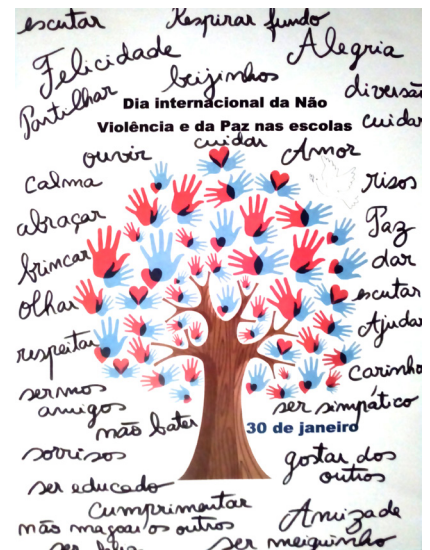 escutar Respirar fundo
Felicidade Alegria
beijinhos diversão
Partilhar
Dia internacional da Não
Violência e da Paz nas escolas
cuidar
cuidar
ouvir Amor
calma risos
abraçar Paz
brincar dar
olhar escutar
respeitar Ajudar
carinho
sermos
amigos ser simpático
não bater 30 de janeiro
sorrisos gostar dos
outros
ser educado
cumprimentar Amizade
não magoar os outros
ser meiguinho